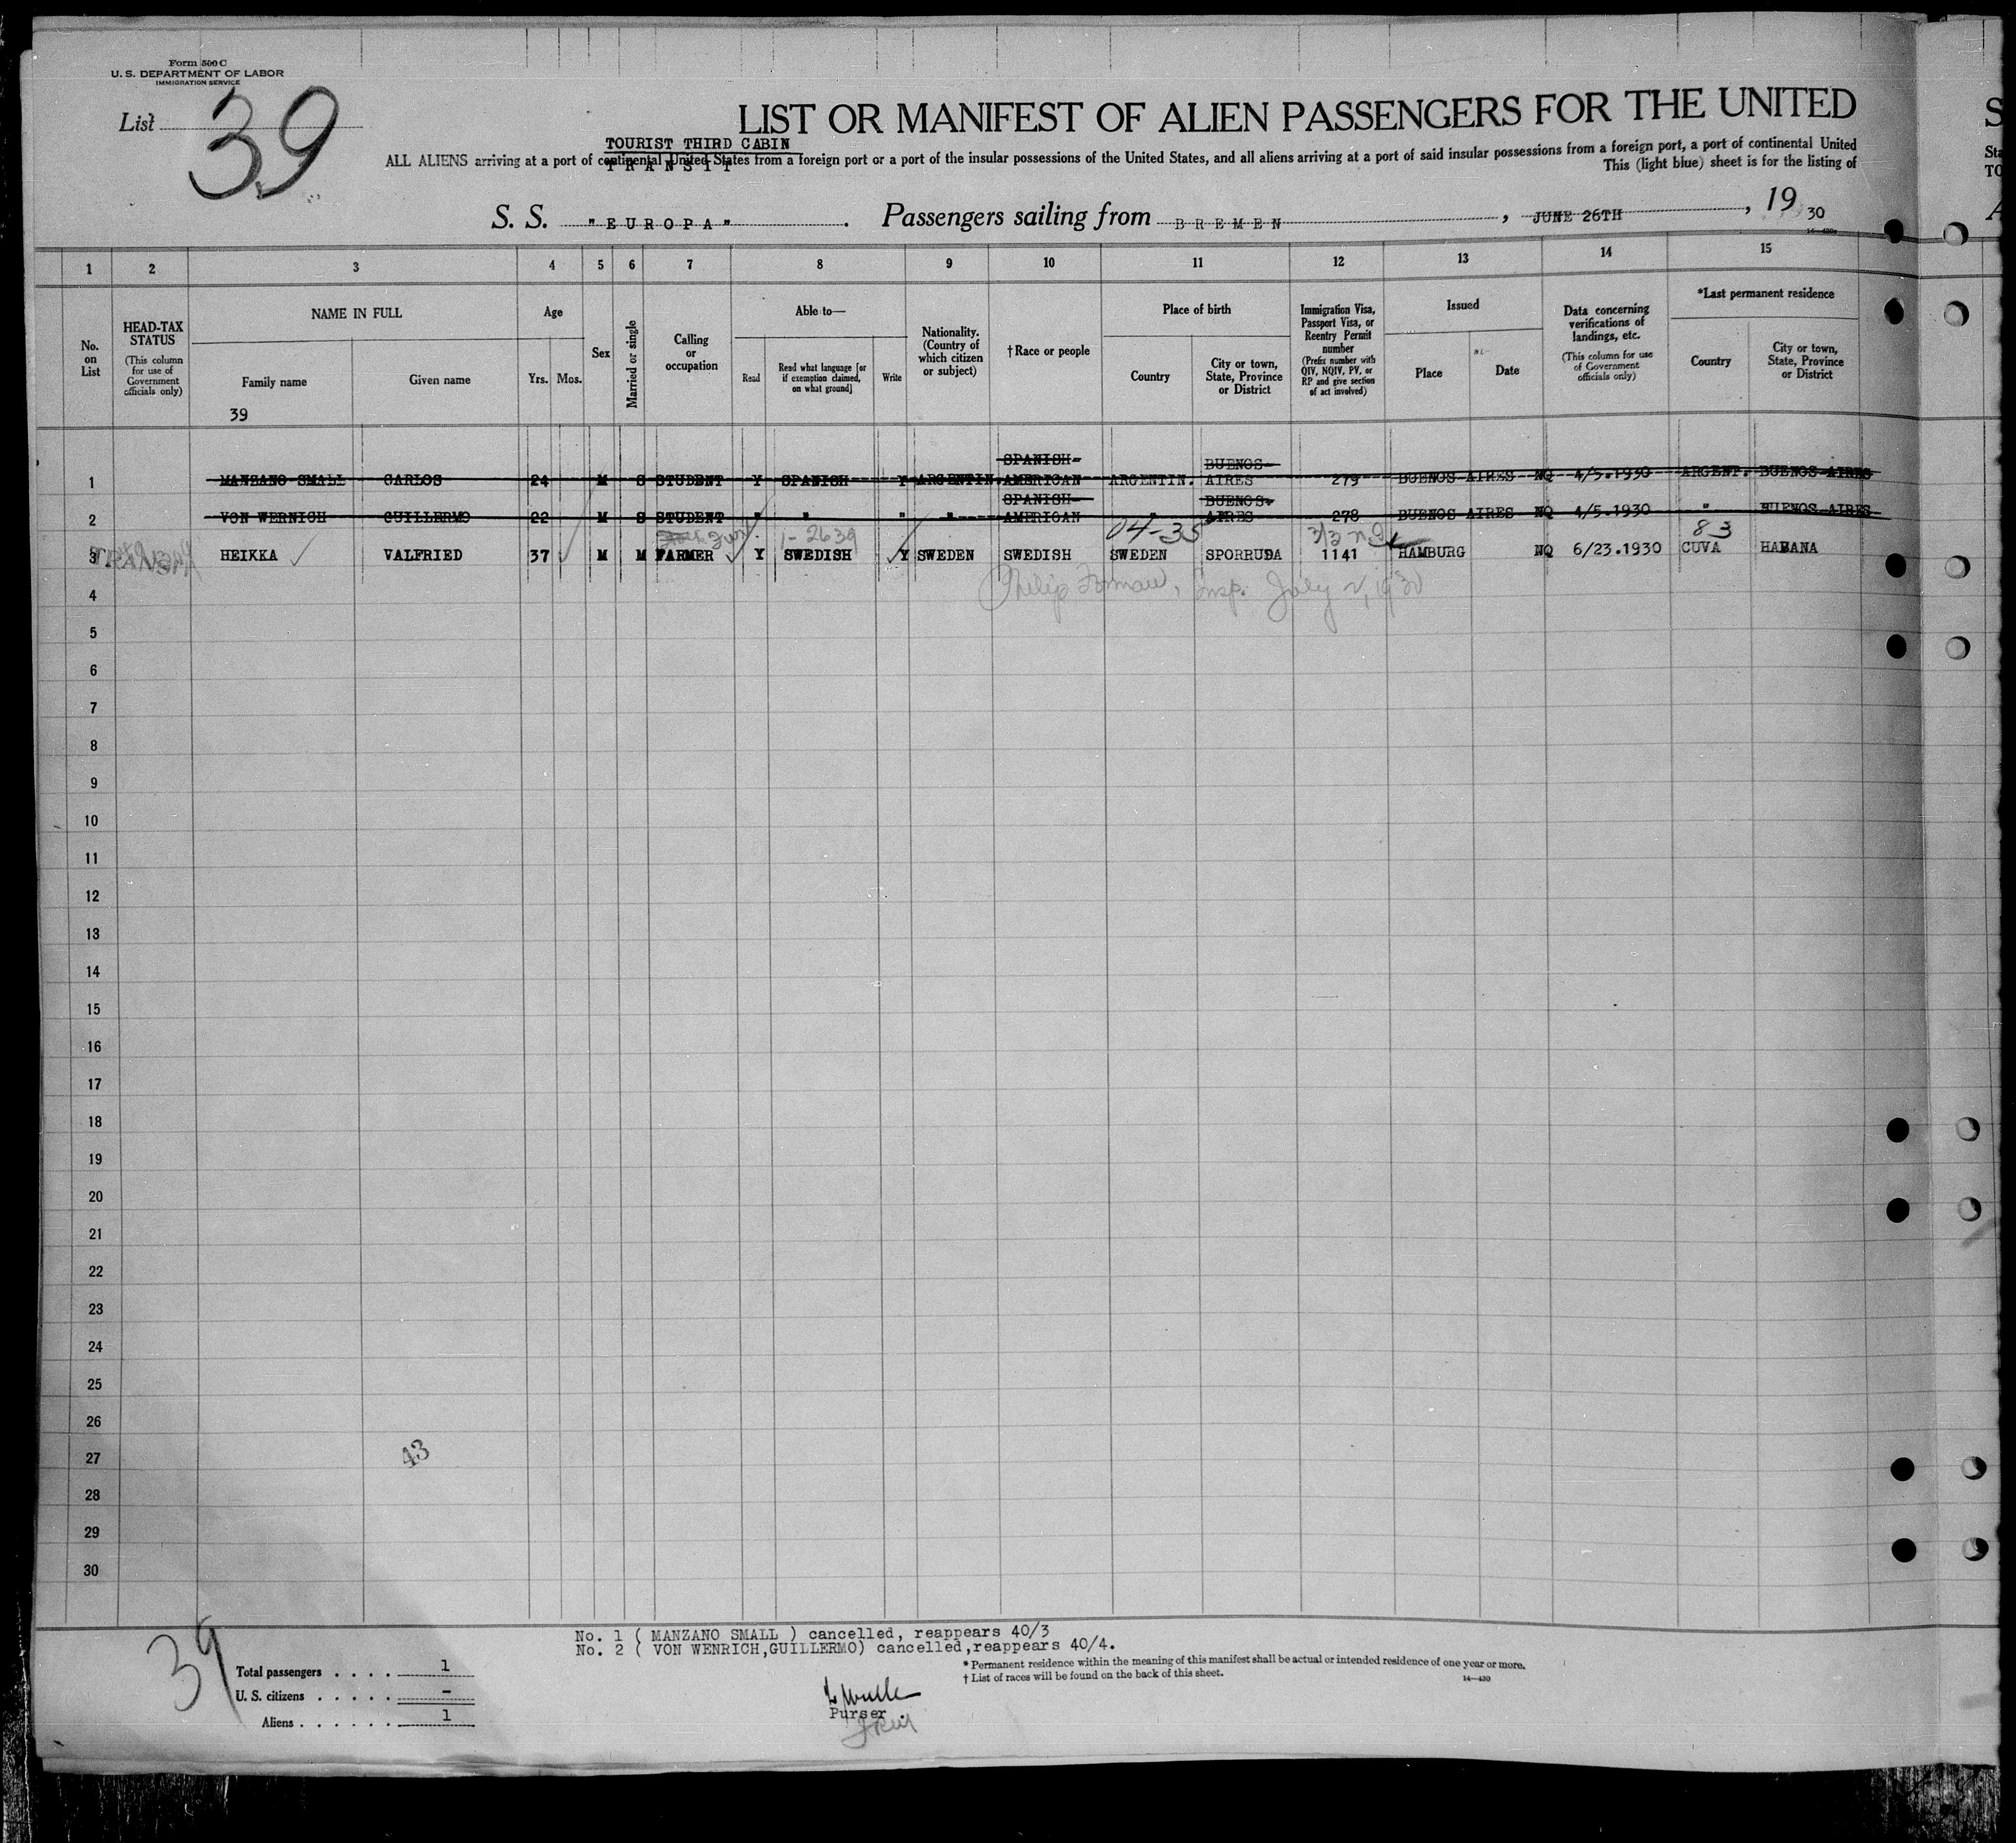 Form 500 C
U. S. DEPARTMENT OF LABOR
IMMIGRATION SERVICE
List 39
LIST OR MANIFEST OF ALIEN PASSENGERS FOR THE UNITED
TOURIST THIRD CABIN
ALL ALIENS arriving at a port of continental United States from a foreign port or a port of the insular possessions of the United States, and all aliens arriving at a port of said insular possessions from a foreign port, a port of continental United
TRANSIT
This (light blue) sheet is for the listing of
S. S. "EUROPA". Passengers sailing from BREMEN, JUNE 26TH, 1930
1 2 3 4 5 6 7 8 9 10 11 12 13 14 15
No. on List
HEAD-TAX STATUS (This column for use of Government officials only)
NAME IN FULL
Family name
Given name
39
Age
Yrs. Mos.
Sex
Married or single
Calling or occupation
Able to—
Read
Read what language [or if exemption claimed, on what ground]
Write
Nationality. (Country of which citizen or subject)
† Race or people
Place of birth
Country
City or town, State, Province or District
Immigration Visa, Passport Visa, or Reentry Permit number (Prefix number with QIV, NQIV, PV, or RP and give section of act involved)
Issued
Place
Date
Data concerning verifications of landings, etc. (This column for use of Government officials only)
*Last permanent residence
Country
City or town, State, Province or District
1 MANZANO SMALL CARLOS 24 M S STUDENT Y SPANISH Y ARGENTIN. SPANISH-AMERICAN ARGENTIN. BUENOS-AIRES 279 BUENOS AIRES NQ 4/5.1930 ARGENT. BUENOS AIRES
2 VON WERNICH GUILLERMO 22 M S STUDENT " " " " SPANISH-AMERICAN " BUENOS-AIRES 278 BUENOS AIRES NQ 4/5.1930 " BUENOS AIRES
1-2639 04-35 83
TRANSIT
3 HEIKKA VALFRIED 37 M M FARMER Y SWEDISH Y SWEDEN SWEDISH SWEDEN SPORRUDA 1141 HAMBURG NQ 6/23.1930 CUVA HABANA
4 Philip Insp. July 2, 1930
5
6
7
8
9
10
11
12
13
14
15
16
17
18
19
20
21
22
23
24
25
26
27
43
28
29
30
39
No. 1 ( MANZANO SMALL ) cancelled, reappears 40/3
No. 2 ( VON WENRICH,GUILLERMO) cancelled,reappears 40/4.
* Permanent residence within the meaning of this manifest shall be actual or intended residence of one year or more.
† List of races will be found on the back of this sheet.
14—430
Total passengers . . . . 1
U. S. citizens . . . . . –
Aliens . . . . . . 1
Purser.